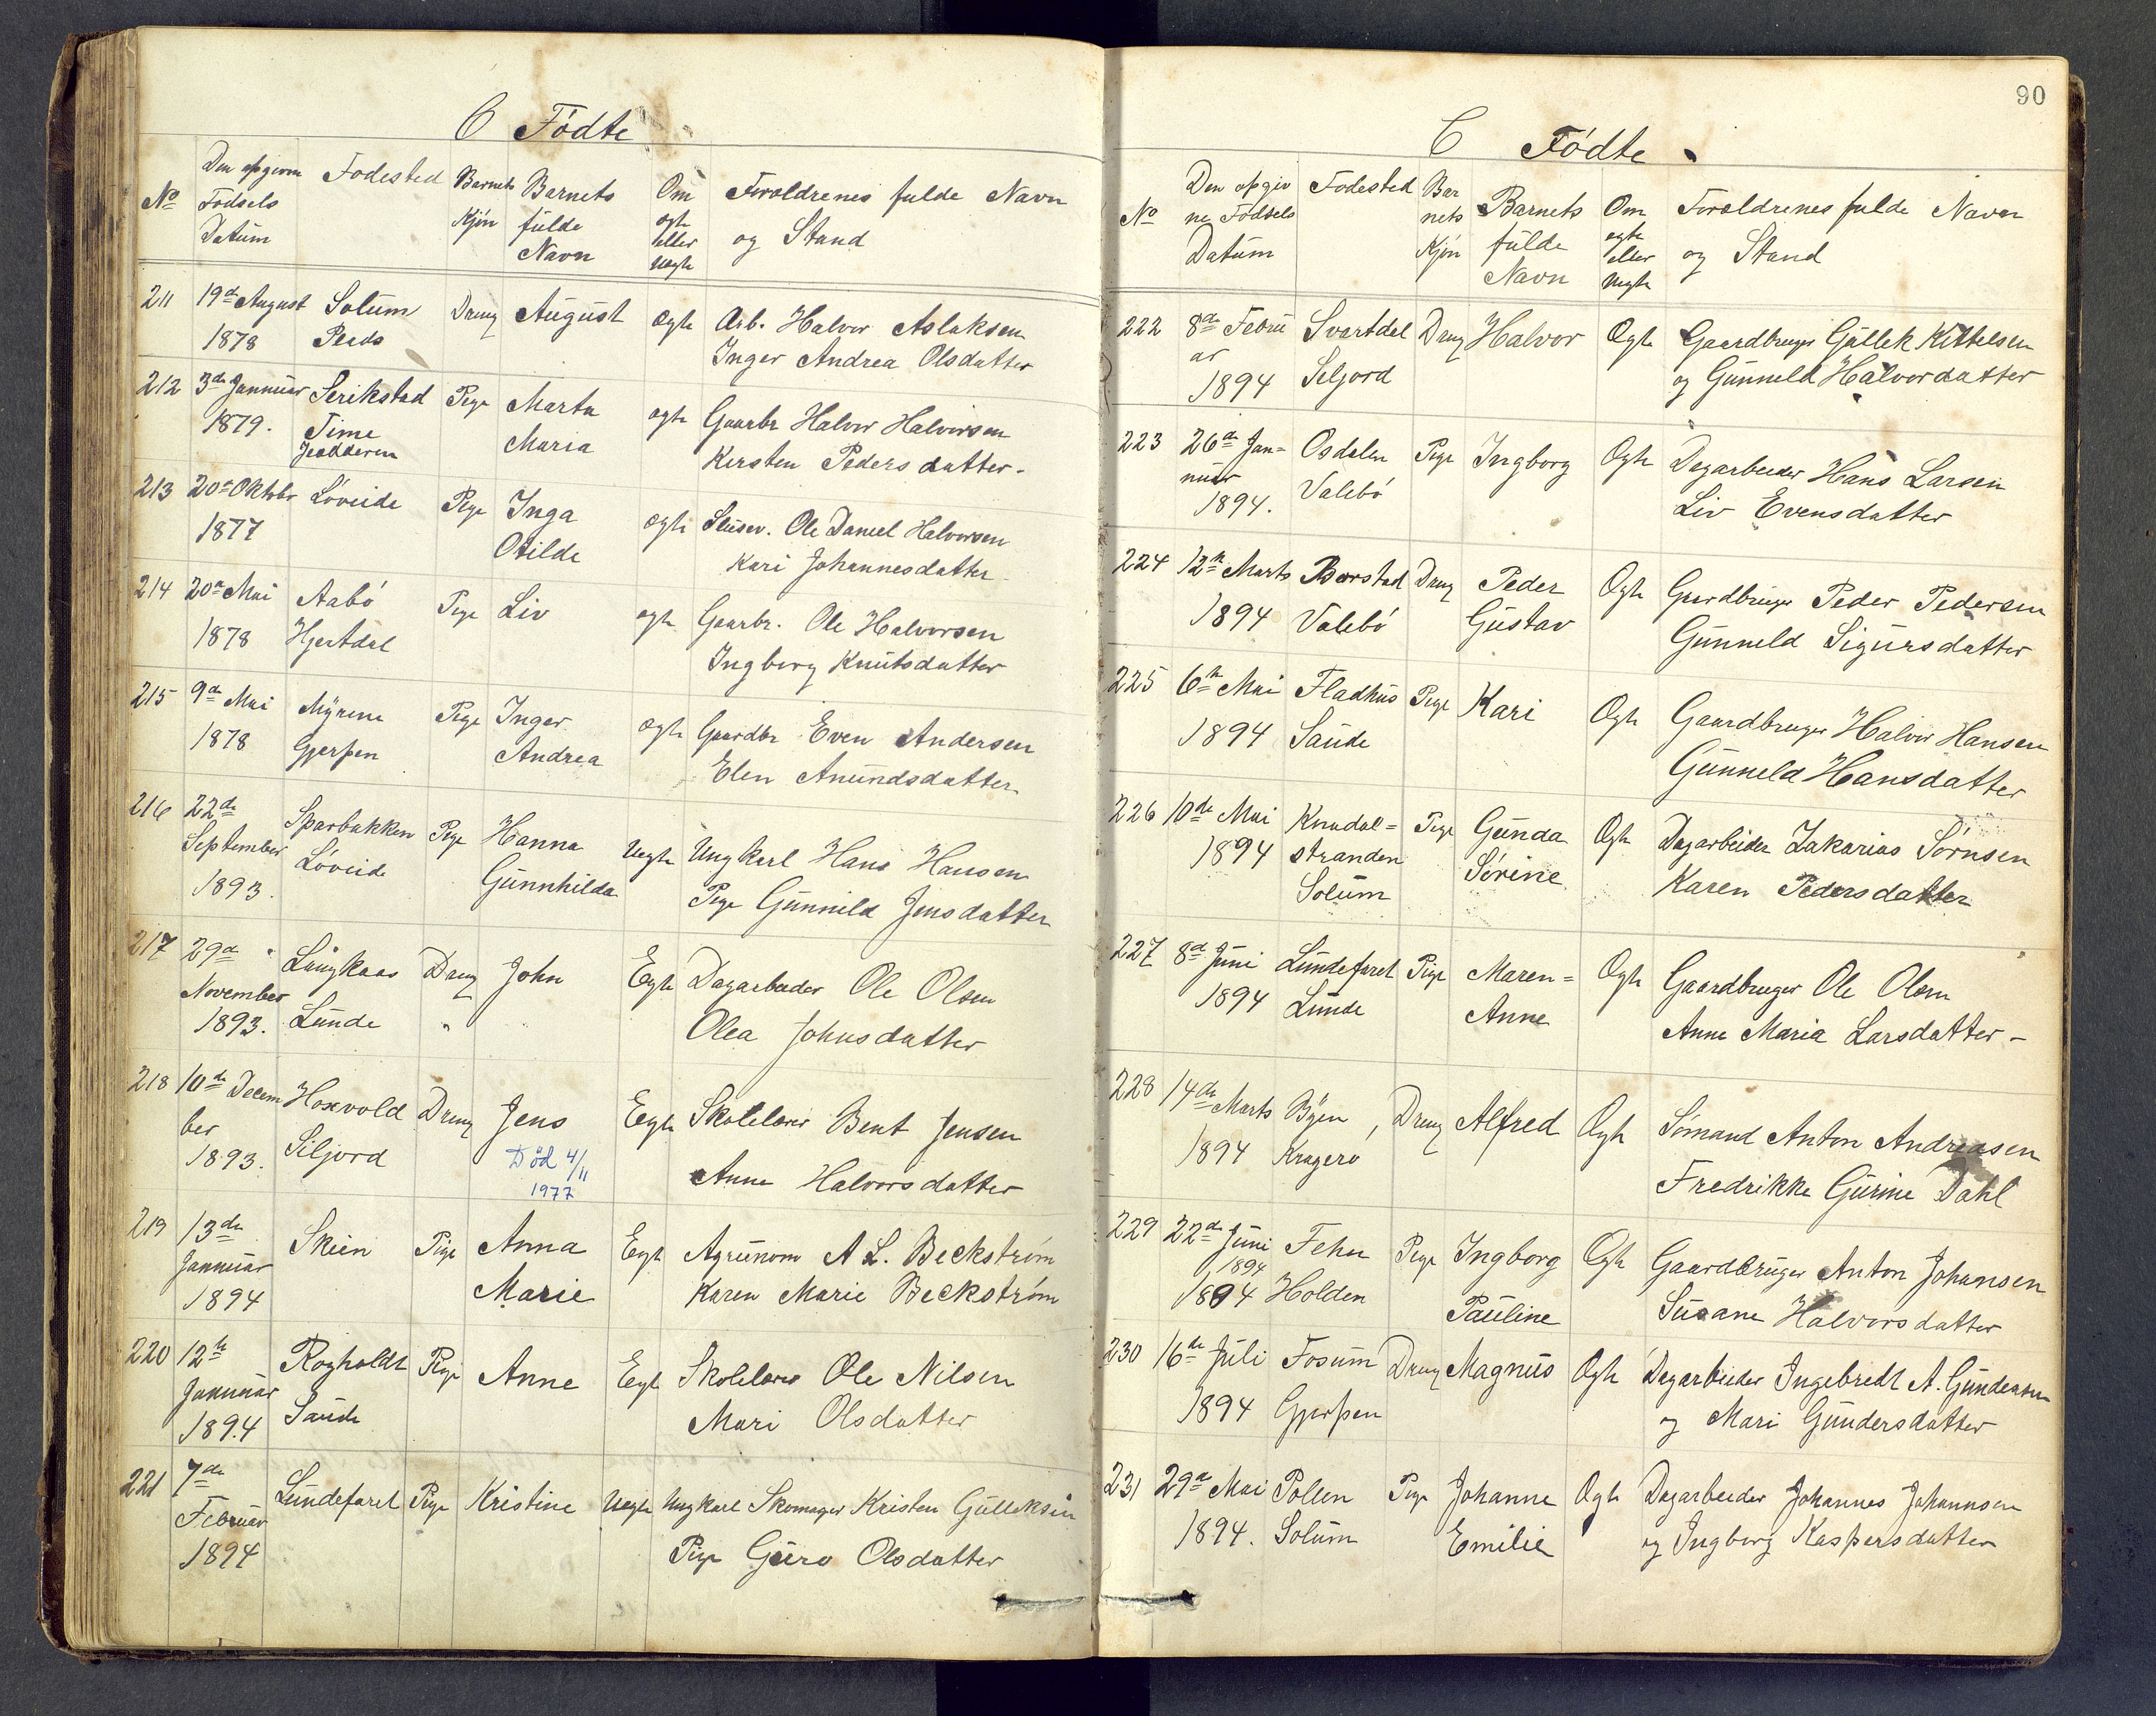 C Födte
No
Den opgivne Födsels Datum
Fodested
Barnets Kjön
Barnets fulde Navn
Om ogte eller uegte
Foroldrenes fulde Navn og Stand
211 19d August Solum Dreng August ogte Arb. Halvor Aslaksen
1878 Inger Andrea Olsdatter
212 3de Januar Serikstad Pige Marta ogte Gaarbr Halvor Halvorsen
1879. Time Maria Kirsten Pedersdatter-
Jedderen
213 20d Oktobr Löveide Pige Inga ogte Ole Daniel Halvorsen
1877 Otilde Kari Johannesdatter
214 20de Mai Aabö Pige Liv ogte Gaarbr. Ole Halvorsen
1878 Hjertdal Ingborg Knutsdatter
215 9de Mai Myrene Pige Inger ogte Gaardbr Even Andersen
1878 Gjerpen Andrea Elen Anundsdatter
216 22de Sparbakken Pige Hanna Uegte Ungkarl Hans Hansen
September Löveide Gunnhilda Pige Gunnild Jensdatter
1893.
217 29d Langkaas Dreng John Egte Dagarbeider Ole Olsen
November Olea Johnsdatter
1893. Lunde "
218 10de Decem Hoxvold Dreng Jens Egte Skolelærer Bent Jensen
ber Siljord Död 4/11 Anne Halvorsdatter
1893. 1977
219 13de Skien Pige Anna Egte Agrunom A L. Beckström
Januar Marie Karen Marie Beckström
1894
220 12te Rogholdt Pige Anne Egte Skolelærer Ole Nilsen
Januar Saude Mari Olsdatter
1894
221 7de Lundefaret Pige Kristine Uegte Ungkarl Skomager Kristen Gulleksen
Februar Pige Guro Olsdatter
1894
90
C Födte
No
Den opgivne Födsels Datum
Fodested
Barnets Kjön
Barnets fulde Navn
Om egte eller uegte
Foroldrenes fulde Navn og Stand
222 8de Febru Svartdal Dreng Halvor Ogte Gaardbruger Gullek Kittelsen
ar Seljord og Gunneld Halvordatter
1894
223 26de Jan= Osdalen Pige Ingborg Ogte Dagarbeider Hans Larsen
nuar Valebö Liv Evensdatter
1894.
224 12te Marts Borstad Dreng Peder Ogte Gaardbruger Peder Pedersen
1894 Valebö Gustav Gunneld Sigursdatter
225 6te Mai Fladhus Pige Kari Ogte Gaardbruger Halvor Hansen
1894 Saude Gunneld Hansdatter
226 10de Mai Knudal= Pige Gunda Ogte Dagarbeider Zakarias Sörnsen
1894 stranden Sörine Karen Pedersdatter
Solum
227 8d Juni Lundefaret Pige Maren= Ogte Gaardbruger Ole Olsen
1894 Lunde Anne Anne Maria Larsdatter-
228 14de Marts Byen, Dreng Alfred Ogte Sömand Anton Andreasen
1894 Kragerö Fredrikke Gurine Dahl
229 22de Juni Fehn Pige Ingborg Ogte Gaardbruger Anton Johansen
1894
1894 Holden Pauline Susane Halvorsdatter
230 16de Juli Fosum Dreng Magnus Ogte Dagarbeider Ingebredt A. Gundersen
1894 Gjerpen og Mari Gundersdatter
231 29d Mai Pollen Pige Johanne Ogte Dagarbeider Johannes Johannsen
1894. Solum Emilie og Ingborg Kaspersdatter